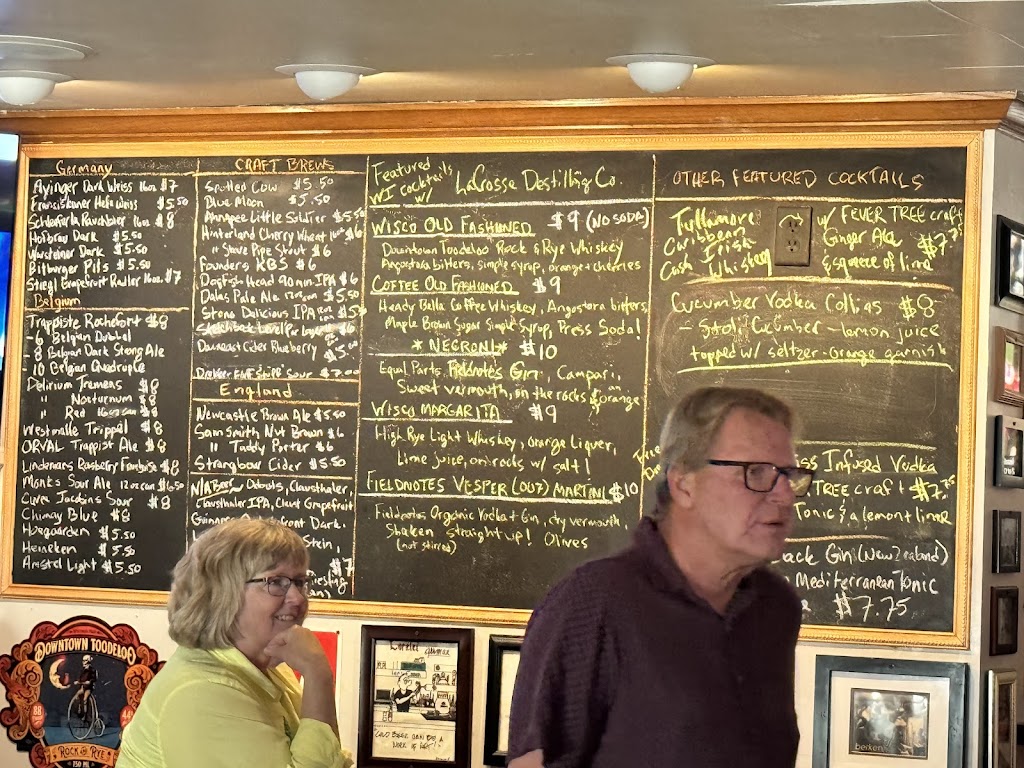 Germany
Ayinger Dark Weiss 16oz. $7
Franziskaner Hefe Weiss $5.50
Schlenkerla Rauchbier 16oz. $8
Hofbrau Dark $5.50
Warsteiner Dark $5.50
Bitburger Pils $5.50
Stiegl Grapefruit Radler 16oz. $7
Belgium
Trappiste Rochefort $8
- 6 Belgian Dubbel
- 8 Belgian Dark Strong Ale
- 10 Belgian Quadruple
Delirium Tremens $8
" Nocturnum $8
" Red $8
Westmalle Trippel $8
ORVAL Trappist Ale $8
Lindemans Rasberry Framboise $8
Monks Sour Ale 12oz can $6.50
Cuvee Jacobins Sour $8
Chimay Blue $8
Hoegaarden $5.50
Heineken $5.50
Amstel Light $5.50
CRAFT BREWS
Spotted Cow $5.50
Blue Moon $5.50
Ahnapee Little Soldier $5.50
Hinterland Cherry Wheat 16oz $6
" Stove Pipe Stout $6
Founders KBS $6
Dogfish Head 90 min IPA $6
Dales Pale Ale 12oz can $5.50
Stone Delicious IPA $5.50
$6
Downeast Cider Blueberry $5.00
Sour $7.00
England
Newcastle Brown Ale $5.50
Sam Smith Nut Brown $6
" " Taddy Porter $6
Strongbow Cider $5.50
N/A Beers Odouls, Clausthaler,
Clausthaler IPA, Claust Grapefruit
Dark.
$7
Featured
WI cocktails
w/
LaCrosse Distilling Co.
WISCO OLD FASHIONED $9 (NO SODA)
Downtown Toodeloo Rock & Rye Whiskey
Angostura bitters, simple syrup, orange + cherries
COFFEE OLD FASHIONED $9
Handy Bella Coffee Whiskey, Angostora bitters,
Maple Brown Sugar Simple Syrup, Press Soda!
* NEGRONI * $10
Equal Parts, Fieldnotes Gin, Campari,
Sweet vermouth, on the rocks & orange
WISCO MARGARITA $9
High Rye Light Whiskey, orange liquer,
Lime juice, on rocks w/ salt!
FIELDNOTES VESPER (007) MARTINI $10
Fieldnotes Organic Vodka + Gin, dry vermouth,
Shaken straight up! Olives
(not stirred)
OTHER FEATURED COCKTAILS
Tullamore
Caribbean
Cask Irish
Whiskey
w/ FEVER TREE craft
Ginger Ale
& squeeze of lime
$7.75
Cucumber Vodka Collins $8
- Stoli Cucumber - lemon juice
topped w/ seltzer - Orange garnish
Infused Vodka
TREE craft $7.75
Tonic & a lemon + lime
Gin (New Zealand)
Mediterranean Tonic
$7.75
DOWNTOWN TOODELOO
88
ROCK AND RYE
750 ML
Lorelei
berken